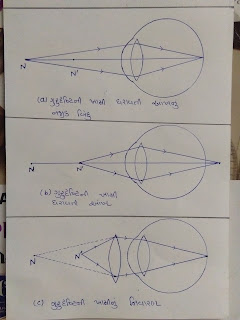 N N'
(a) ગુરુદૃષ્ટિની ખામી ધરાવતી આંખનું
નજીક બિંદુ
N N'
(b) ગુરુદૃષ્ટિની ખામી
ધરાવતી આંખ
N N'
(c) ગુરુદૃષ્ટિની ખામીનું નિવારણ